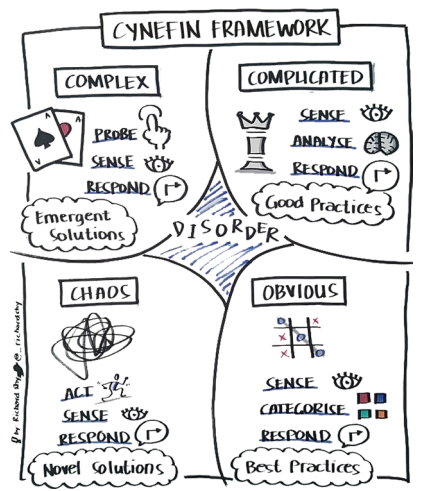 CYNEFIN FRAMEWORK
COMPLEX
A
A
PROBE
SENSE
RESPOND
Emergent
Solutions
COMPLICATED
SENSE
ANALYSE
RESPOND
Good Practices
DISORDER
CHAOS
ACT
SENSE
RESPOND
Novel Solutions
OBVIOUS
SENSE
CATEGORISE
RESPOND
Best Practices
by Richard Shy @_richardshy